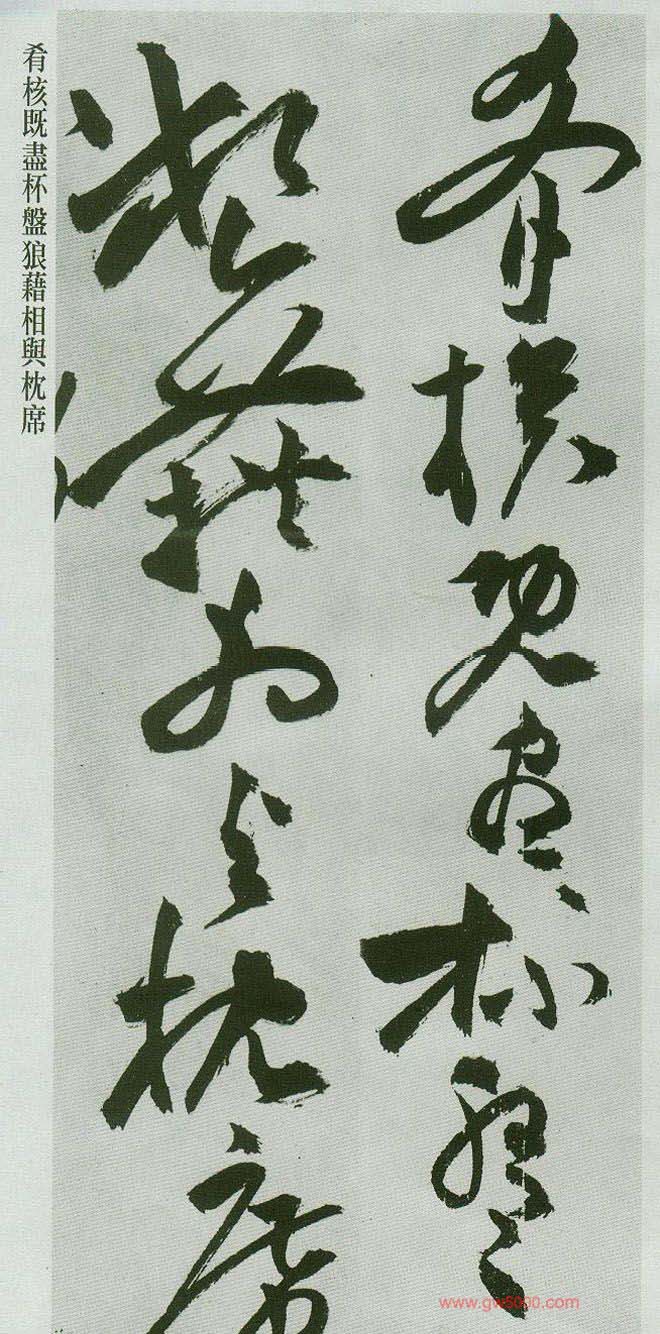 肴核既盡杯盤
狼藉相與枕席
肴核既盡杯盤狼藉相與枕席
www.gw5000.com